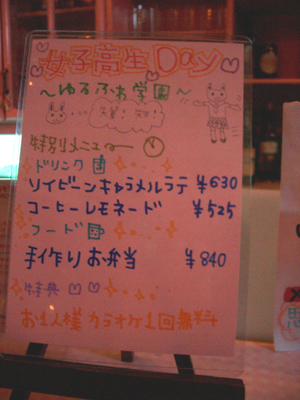 女子高生Day
～ゆるふわ学園～
特別メニュー
ドリンク
ソイビーンキャラメルラテ ¥630
コーヒーレモネード ¥525
フード
手作りお弁当 ¥840
特典
お1人様カラオケ1回無料